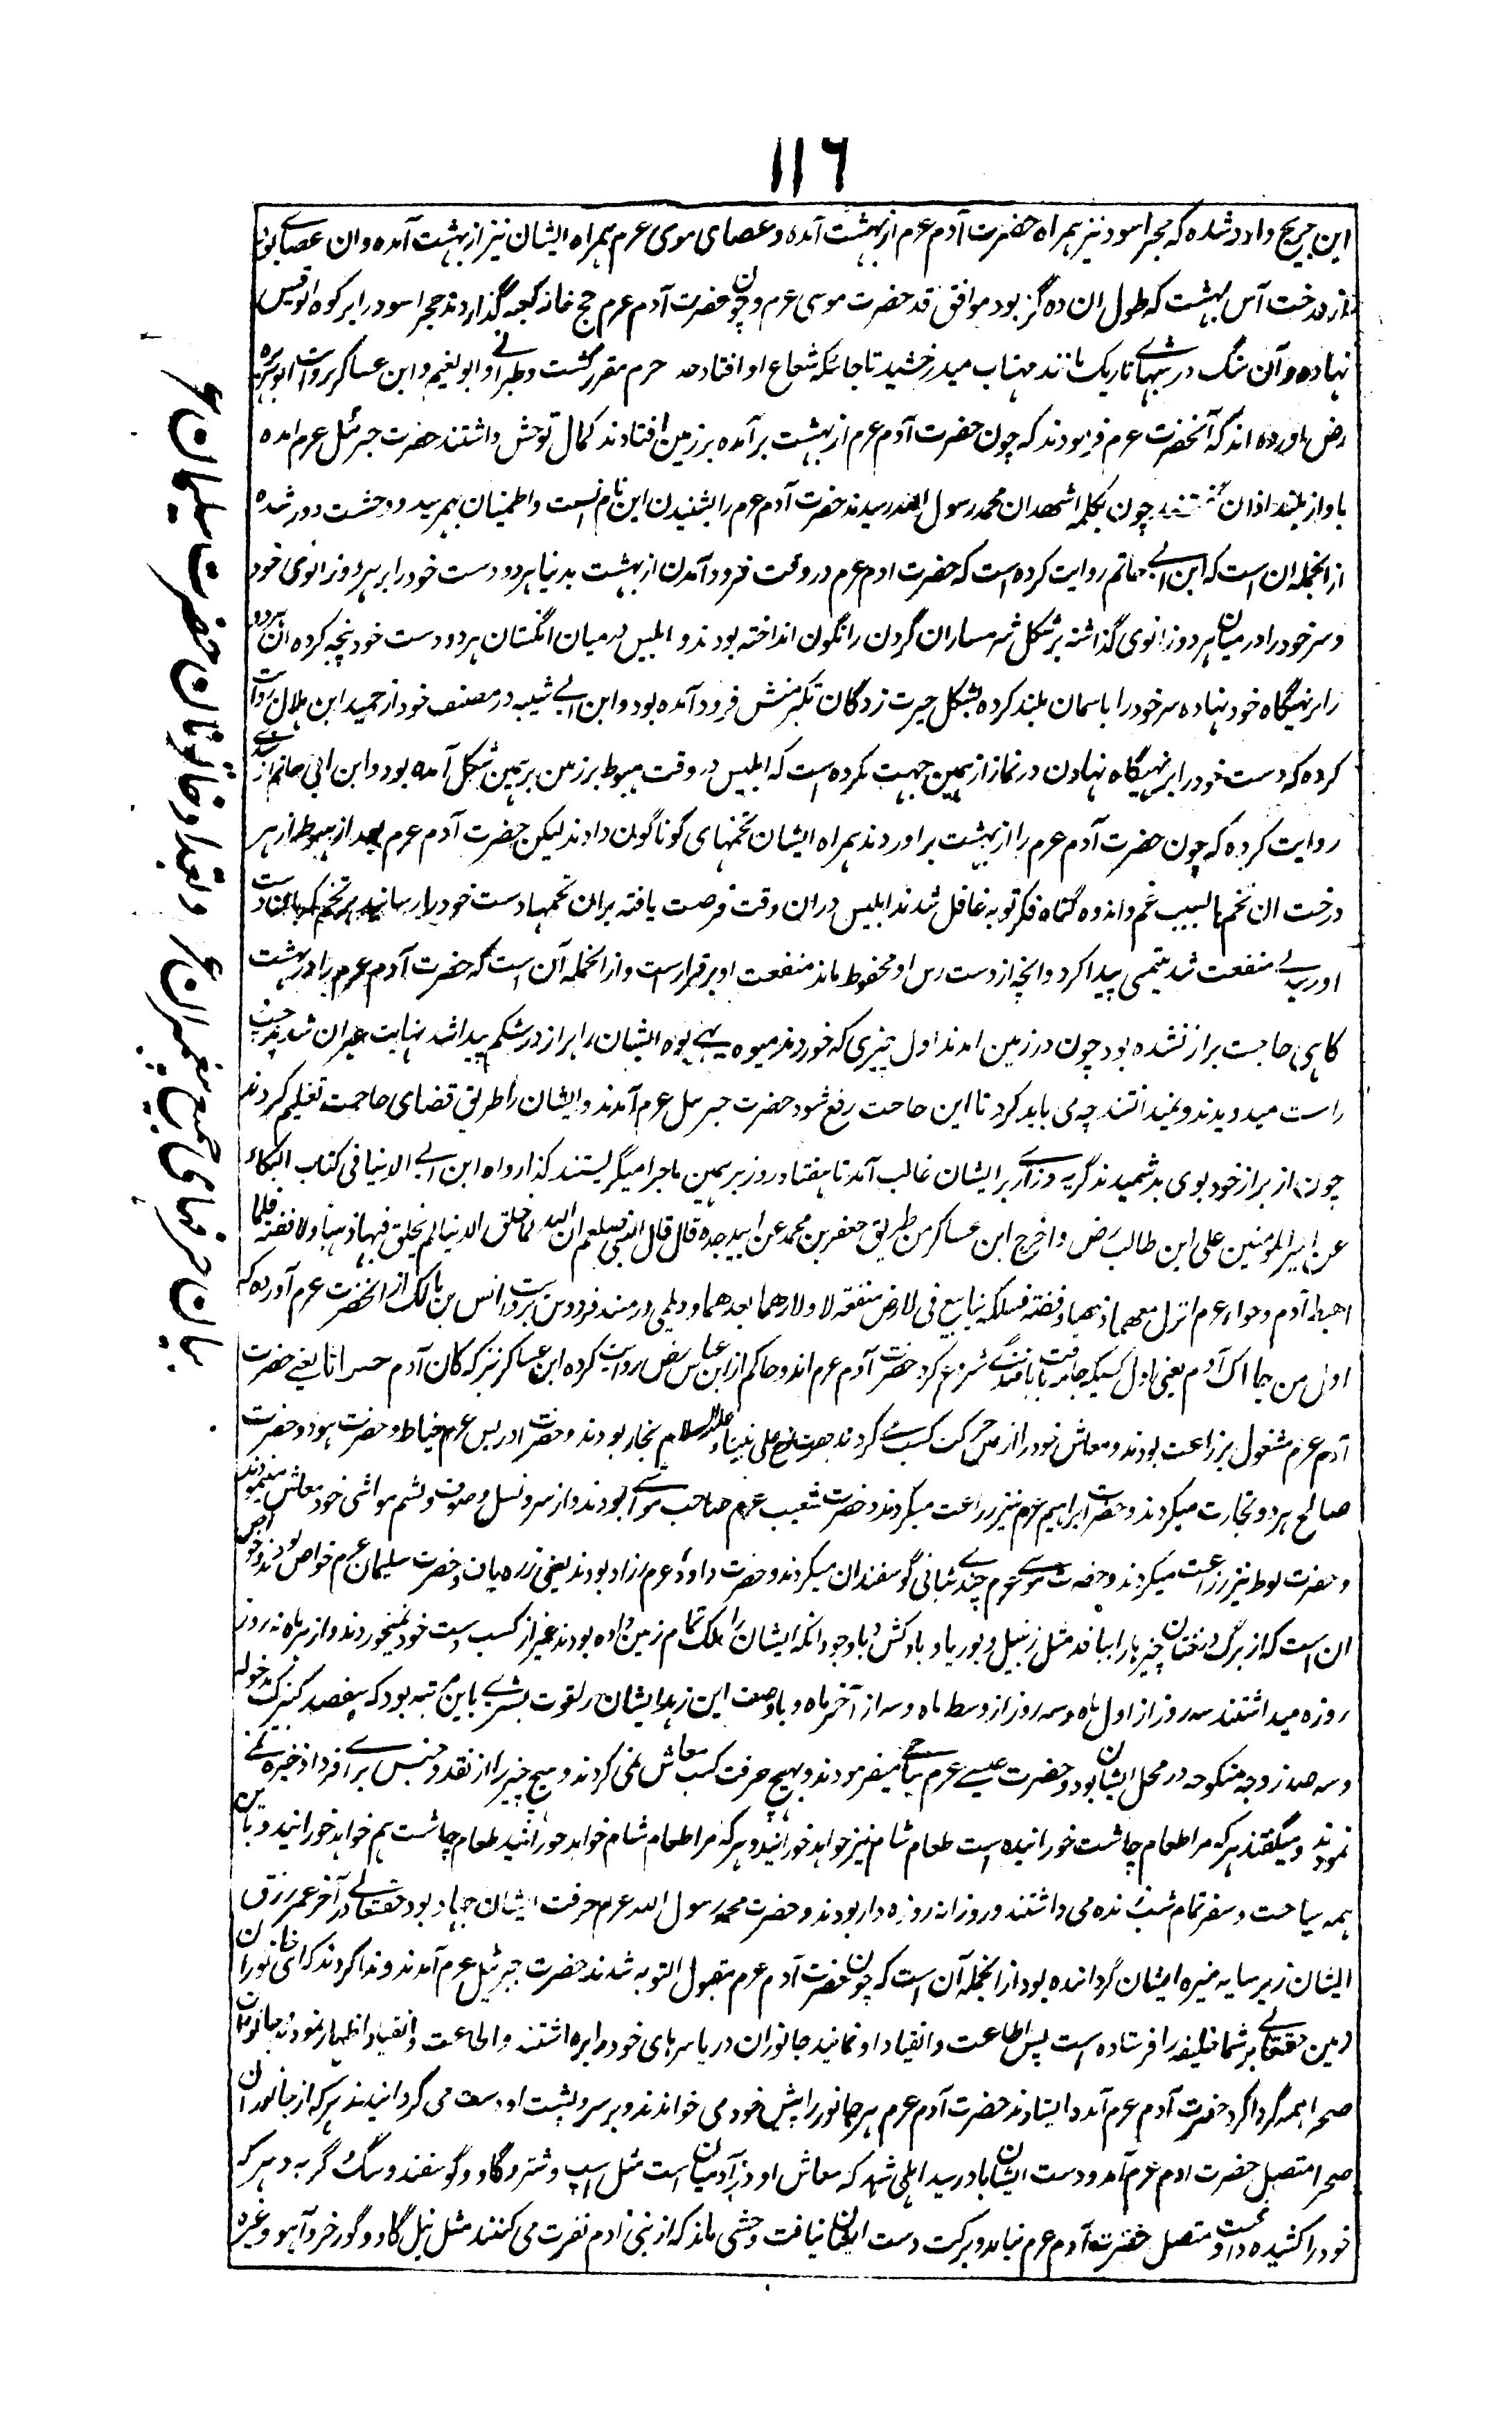 ۱۱۶
ابن جریج وارد شده که حجر اسود نیز همراه حضرت آدم عرم از بهشت آمده و عصای موسی عرم همراه ایشان نیز از بهشت آمده وان عصای بود
از درخت آس بهشت که طول ان ده گز بود موافق قد حضرت موسی عرم و چون حضرت آدم عرم حج خانه کعبه گذاردند حجر اسود را بر کوه ابوقبیس
نهاده و آن سنگ در شبهای تاریک مانند مهتاب میدرخشید تا جائیکه شعاع او افتاد حد حرم مقرر گشت و طبرانی و ابو نعیم و ابن عساکر بروایت ابوهریره
رض اورده اند که آنحضرت عرم فرمودند که چون حضرت آدم عرم از بهشت برآمده بر زمین افتادند کمال توحش داشتند حضرت جبرئل عرم امده
باواز بلند اذان گفتند چون بکلمه اشهد ان محمد رسول الله رسیدند حضرت آدم عرم را بشنیدن این نام انست و اطمینان بهم رسید و وحشت دور شده
از انجمله ان است که ابن ابی حاتم روایت کرده است که حضرت ادم عرم در وقت فرود آمدن از بهشت بدنیا هر دو دست خود را بر هر دو زانوی خود
و سر خود را در میان هر دو زانوی گذاشته بر شکل شرمساران گردن را نگون انداخته بودند و ابلیس در میان انگشتان هر دو دست خود پنجه کرده ان هر دو
را بر تهیگاه خود نهاده سر خود را باسمان بلند کرده بشکل حیرت زدگان تکبر منش فرود آمده بود و ابن ابی شیبه در مصنف خود از حمید ابن هلال روایت
کرده که دست خود را بر تهیگاه نهادن در نماز از همین جهت مکروه است که ابلیس در وقت هبوط بر زمین بر همین شکل آمده بود و ابن ابی حاتم از
روایت کرده که چون حضرت آدم عرم را از بهشت براوردند همراه ایشان تخمهای گوناگون دادند لیکن حضرت آدم عرم بعد از هبوط از هر
درخت ان تخم ها بسبب غم و اندوه گناه فکر توبه غافل شدند ابلیس دران وقت فرصت یافته بران تخمها دست خود را رسانید هر تخم که بان دست
او رسید بی منفعت شد یتیمی پیدا کرد و انچه از دست رس او محفوظ ماند منفعت او برقرار است و از انجمله آن است که حضرت آدم عرم را در بهشت
گاهی حاجت براز نشده بود چون در زمین امدند اول چیزی که خوردند میوه بهی بود ایشان را براز در شکم پیدا شد نهایت حیران شدند چپ
راست میدویدند و نمیدانستند چه می باید کرد تا این حاجت رفع شود حضرت جبرئل عرم آمدند و ایشان را طریق قضای حاجت تعلیم کردند
چون از براز خود بوی بد شمیدند گریه و زاری بر ایشان غالب آمد تا هفتاد روز بر همین ماجرا میگریستند کذا رواه ابن ابی الدنیا فی کتاب البکاء
عن امیر المومنین علی ابن طالب رض و اخرج ابن عساکر من طریق جعفر بن محمد عن ابیه جده قال قال النبی صلعم ان الله لما خلق الدنیا لم یخلق فیها ذهبا ولا فضة فلما
اهبط آدم وحواء عرم انزل معهما ذهبا وفضة فسلکه ینابیع فی الارض منفعة لاولادهما بعدهما و دیلمی در مسند فردوس بروایت انس بن مالک از انحضرت عرم آورده که
اول من حاک آدم یعنی اول کسیکه جامه بافت بافندگی شروع کرد حضرت آدم عرم اند و حاکم از ابن عباس رض روایت کرده ابن عساکر نیز که کان آدم حراثا یعنی حضرت
آدم عرم مشغول بزراعت بودند و معاش خود را از همین حرکت کسب کردند حضرت نوح علی نبینا وعلیه السلام نجار بودند و حضرت ادریس عرم خیاط و حضرت هود و حضرت
صالح هر دو تجارت میکردند و حضرت ابراهیم عرم نیز زراعت میکردند و حضرت شعیب عرم صاحب مواشی بودند و از سر و نسل و صوف و پشم مواشی خود معاش مینمودند
و حضرت لوط نیز زراعت میکردند و حضرت موسی عرم چندی شبانی گوسفندان میکردند و حضرت داود عرم زراد بودند یعنی زره بان و حضرت سلیمان عرم خواص بودند و خواص
ان است که از برگ درختان چیزها را ببافد مثل زنبیل و بوریا و بادکش و با وجود انکه ایشان را ملک تمام زمین داده بودند غیر از کسب دست خود نمیخوردند و از هر ماه نه روز
روزه میداشتند سه روز از اول ماه و سه روز از وسط ماه و سه از آخر ماه و با وصف این زهد ایشان را قوت بشری باین مرتبه بود که هفصد کنیزک مدخوله
و سه صد زوجه منکوحه در محل ایشان بود و حضرت عیسی عرم سیاحی میفرمودند و بهیچ حرفت کسب معاش نمی کردند و هیچ چیز را از نقد و جنس برای فردا ذخیره نمی
نمودند و میگفتند هر که مرا طعام چاشت خورانیده است طعام شام نیز خواهد خورانید و هر که مرا طعام شام خواهد خورانید طعام چاشت هم خواهد خورانید و با این
همه سیاحت و سفر تمام شب زنده می داشتند و روزانه روزه دار بودند و حضرت محمد رسول الله عرم حرفت ایشان جهاد بود حقتعالی در آخر عمر رزق
ایشان زیر سایه نیزه ایشان گردانده بود از انجمله آن است که چون حضرت آدم عرم مقبول التوبه شدند حضرت جبرئیل عرم آمدند و ندا کردند که ای جانوران
زمین حقتعالی بر شما خلیفه را فرستاده است پس اطاعت و انقیاد او نمائید جانوران دریا سرهای خود را برداشتند و اطاعت و انقیاد اظهار نمودند جانوران
صحرا همه گرداگرد حضرت آدم عرم آمده ایستادند حضرت آدم عرم هر جانور را پیش خود می خواندند و بر سر و پشت او دست می گردانیدند هر که از جانوران
صحرا متصل حضرت ادم عرم آمد و دست ایشان باو رسید اهلی شد که معاش او در آدمیان است مثل اسپ و شتر و گاو و گوسفند و سگ و گربه و هر که
خود را کشیده داشت متصل حضرت آدم عرم نیامد و برکت دست ایشان نیافت وحشی ماند که از بنی آدم نفرت می کنند مثل نیل گاو و گورخر و آهو و غیره
بیان حرفهای جمیع پیغمبران ع و تعداد خاتونان حضرت سلیمان ع